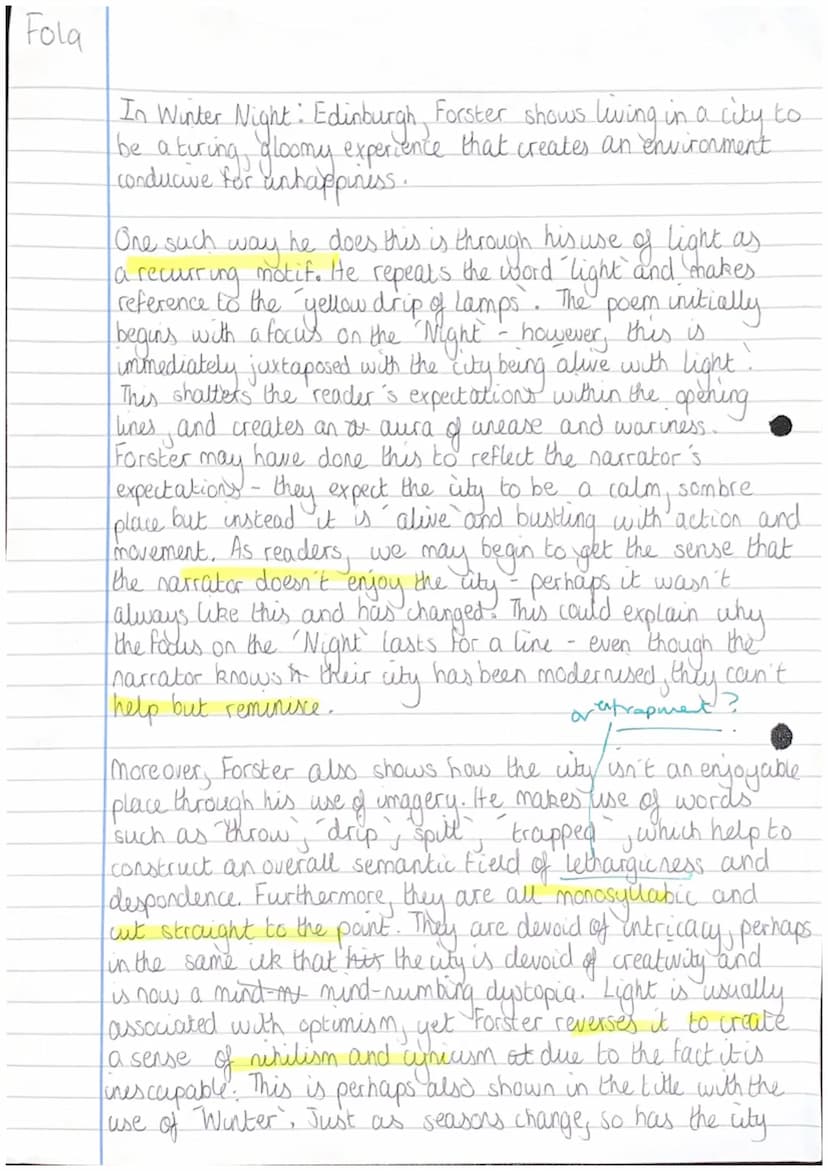 Fola
In Winter Night: Edinburgh, Forster shows living in a city to
be a tiring, gloomy experience that creates an environment
conducive for unhappiness.
One such way he does this is through his use of light as
a recurring motif. He repeats the word 'light' and makes
reference to the 'yellow drip of lamps'. The poem initially
begins with a focus on the 'Night' - however, this is
immediately juxtaposed with the city being 'alive with light'.
This shatters the reader's expectations within the opening
lines, and creates an aura of unease and wariness.
Forster may have done this to reflect the narrator's
expectations - they expect the city to be a calm, sombre
place but instead it is 'alive' and bustling with action and
movement. As readers, we may begin to get the sense that
the narrator doesn't enjoy the city - perhaps it wasn't
always like this and has changed. This could explain why
the focus on the 'Night' lasts for a line - even though the
narrator knows their city has been modernised, they can't
help but reminisce.
or entrapment?
Moreover, Forster also shows how the city isn't an enjoyable
place through his use of imagery. He makes use of words
such as 'throw', 'drip', 'spill', 'trapped', which help to
construct an overall semantic field of lethargicness and
despondence. Furthermore, they are all monosyllabic and
cut straight to the point. They are devoid of intricacy, perhaps
in the same that his the city is devoid of creativity and
is now a mind-nu mind-numbing dystopia. Light is usually
associated with optimism, yet Forster reverses it to create
a sense of nihilism and cynicism due to the fact it is
inescapable. This is perhaps also shown in the title with the
use of 'Winter'. Just as seasons change, so has the city